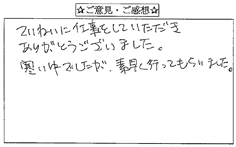 ☆ご意見・ご感想☆
ていねいに仕事をしていただき
ありがとうございました。
寒い中でしたが、素早く行ってもらいました。